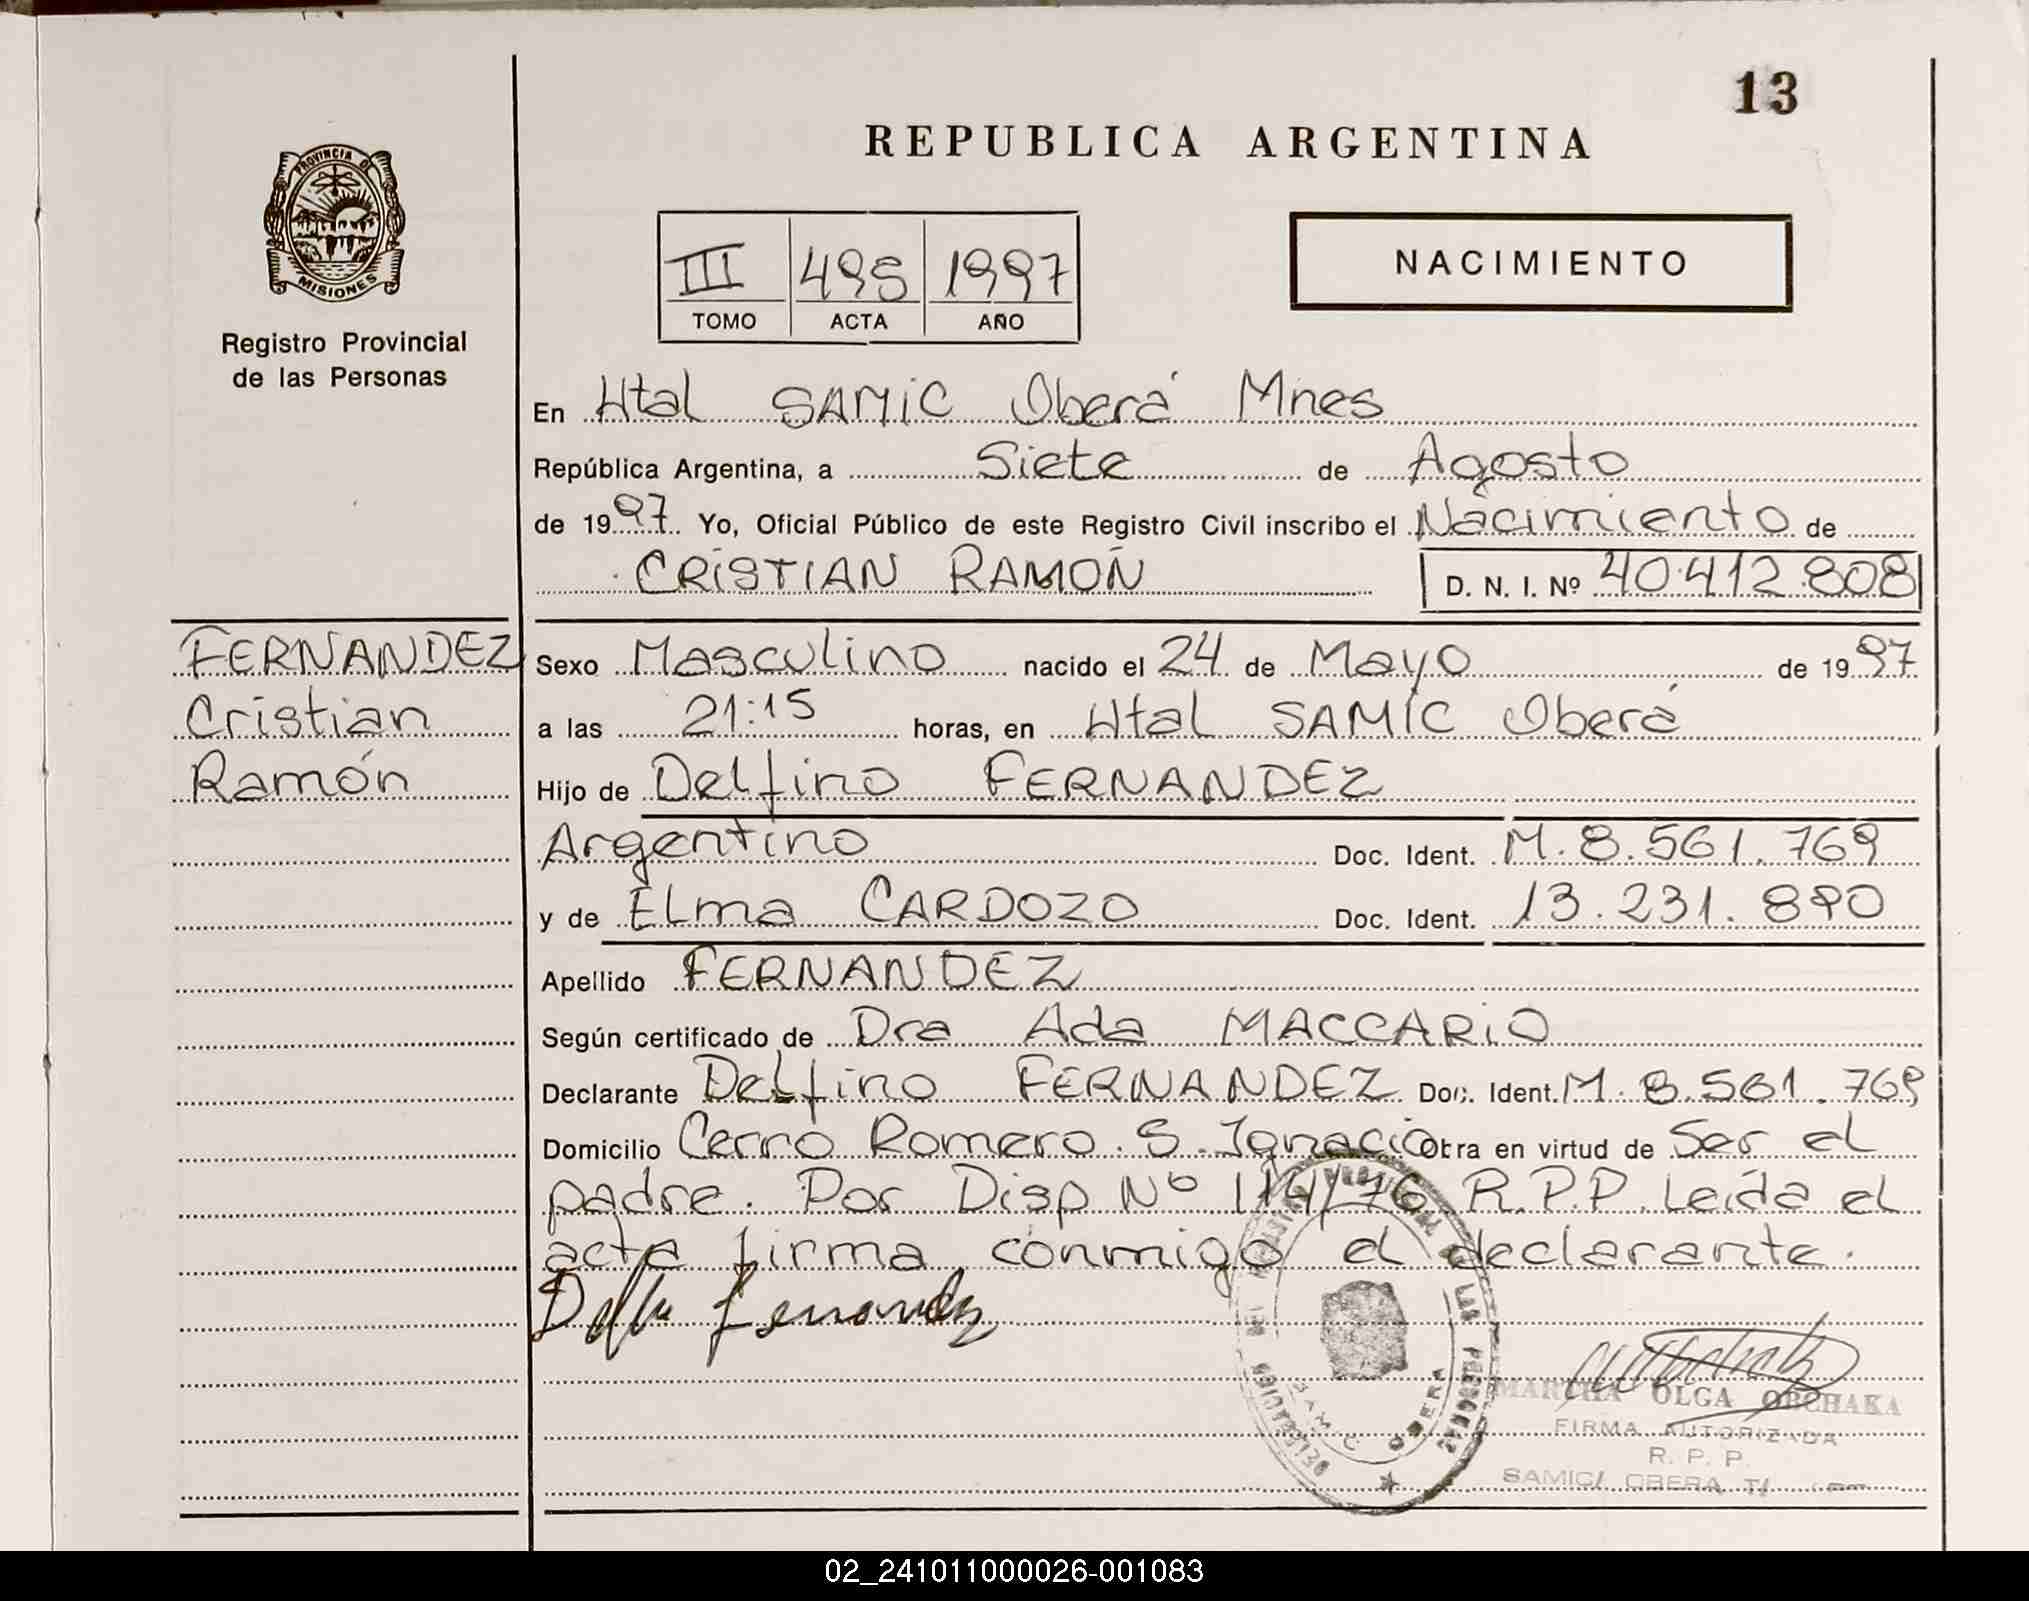 13
REPUBLICA ARGENTINA
PROVINCIA DE
MISIONES
Registro Provincial
de las Personas
III 495 1997
TOMO ACTA AÑO
NACIMIENTO
En Htal SAMIC Oberá Mnes
República Argentina, a Siete de Agosto
de 1997 Yo, Oficial Público de este Registro Civil inscribo el Nacimiento de
CRISTIAN RAMÓN D. N. I. Nº 40.412.808
FERNANDEZ
Cristian
Ramón
Sexo Masculino nacido el 24 de Mayo de 1997
a las 21:15 horas, en Htal SAMIC Oberá
Hijo de Delfino FERNANDEZ
Argentino Doc. Ident. M. 8.561.769
y de Elma CARDOZO Doc. Ident. 13.231.890
Apellido FERNANDEZ
Según certificado de Dra Ada MACCARIO
Declarante Delfino FERNANDEZ Doc. Ident. M. 8.561.769
Domicilio Cerro Romero. S. Ignacio Obra en virtud de Ser el
padre. Por Disp Nº 114/76 R.P.P. Leída el
acta firma conmigo el declarante.
Fernandez
SAMIC OBERA
MARTHA OLGA ORCHAKA
FIRMA AUTORIZADA
R. P. P.
SAMIC/ OBERA
02_241011000026-001083